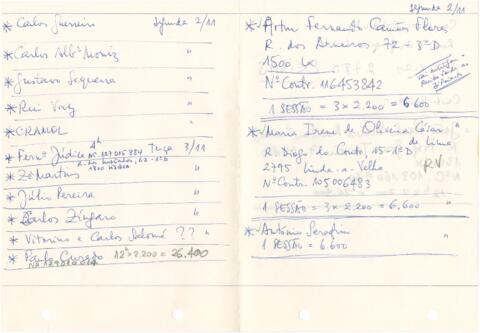 * Carlos Guerreiro Segunda 2/11
* Carlos Albº Moniz "
* Gustavo Sequeira "
* Rui Vaz "
* CRAMOL "
* Fernº Júdice Terça 3/11
* Zé Martins "
* Júlio Pereira "
* Carlos Zíngaro "
* Vitorino e Carlos Salomé ?? "
* Paulo Curado 12h x 2.200 = 26.400
Segunda 2/11
* Artur Fernando Camões Flores
R. dos Arneiros, 72 - 3º D
1500 Lx
Nº Contr. 116453842
1 SESSÃO = 3 x 2.200 = 6.600
* Maria Irene de Oliveira César "
de Lima
R. Diogo do Couto, 15 - 1º D
2795 Linda-a-Velha R.V
Nº Contr. 105006483
1 SESSÃO = 3 x 2.200 = 6.600 "
* António Serafim "
1 SESSÃO = 6.600